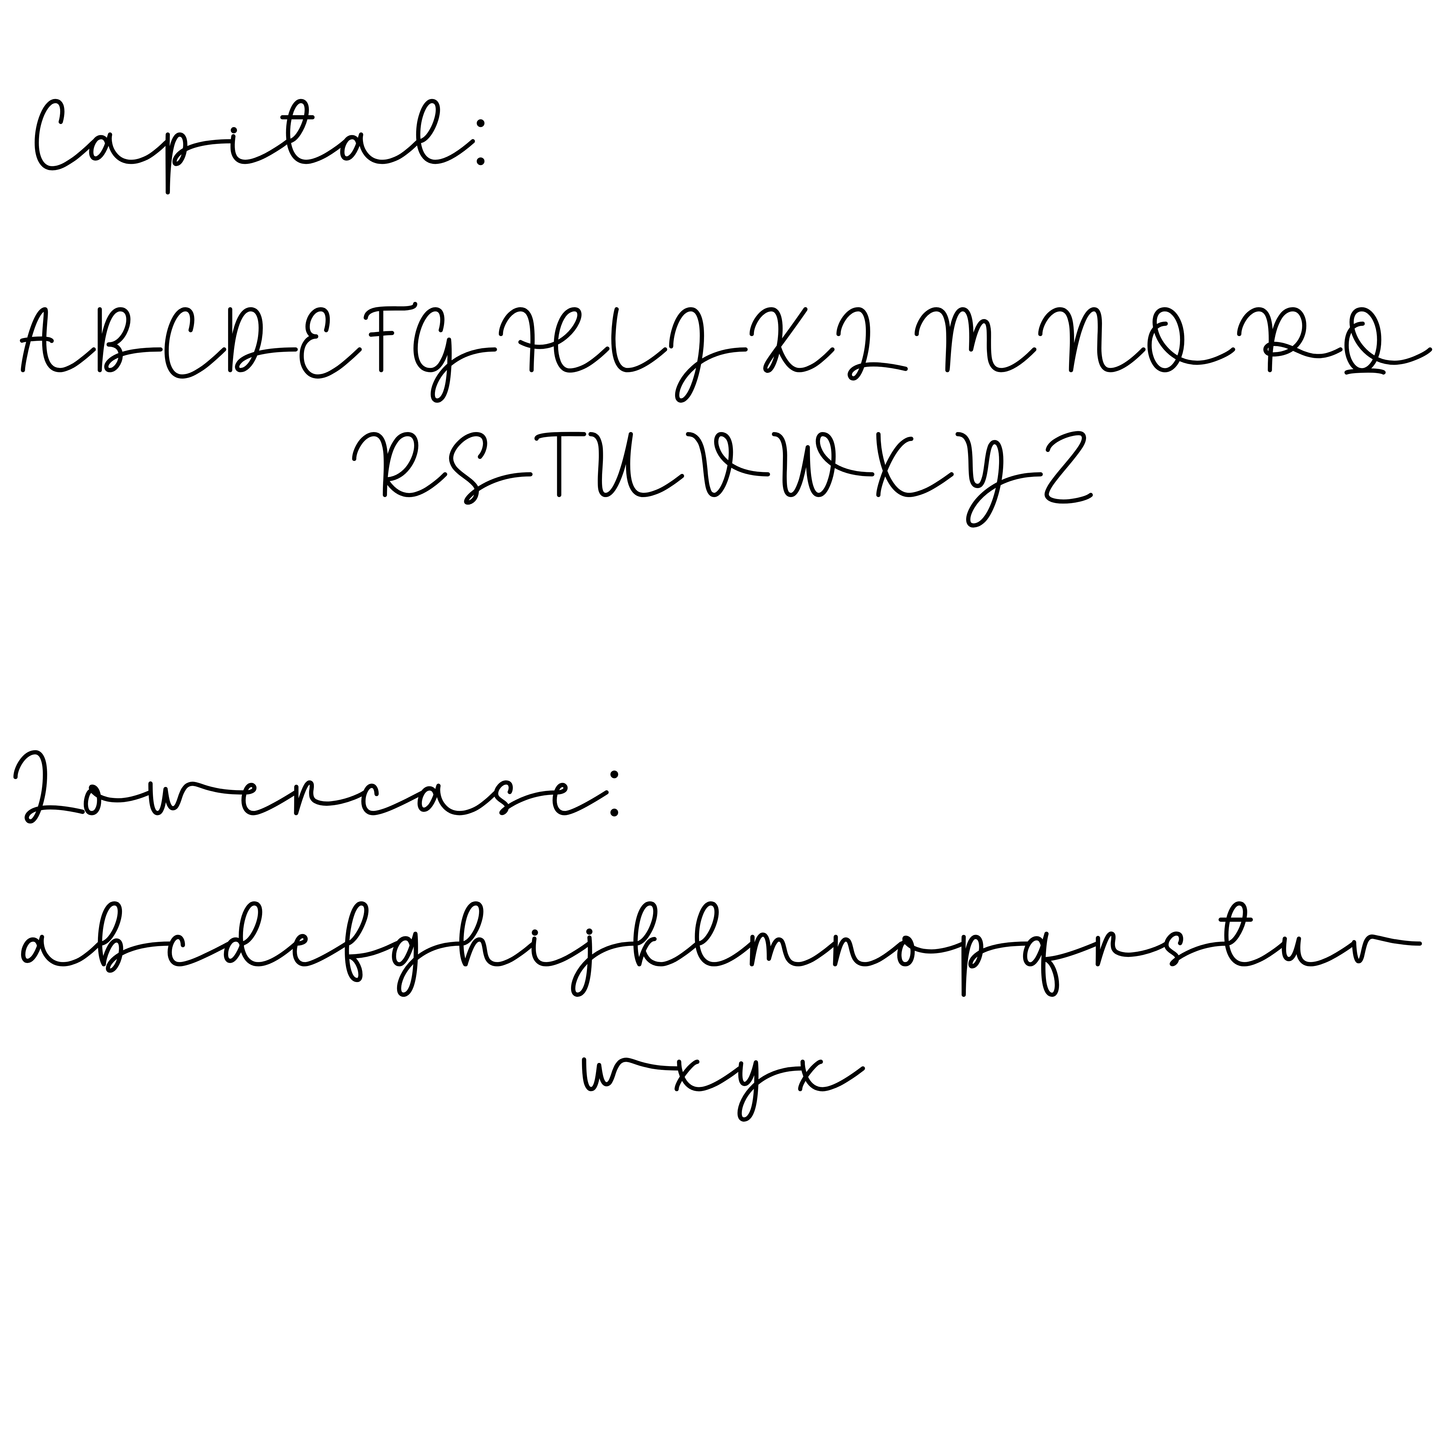 Capital:
ABCDEFGHIJKLMNOPQ
RSTUVWXYZ
Lowercase:
abcdefghijklmnopqrstuv
wxyx